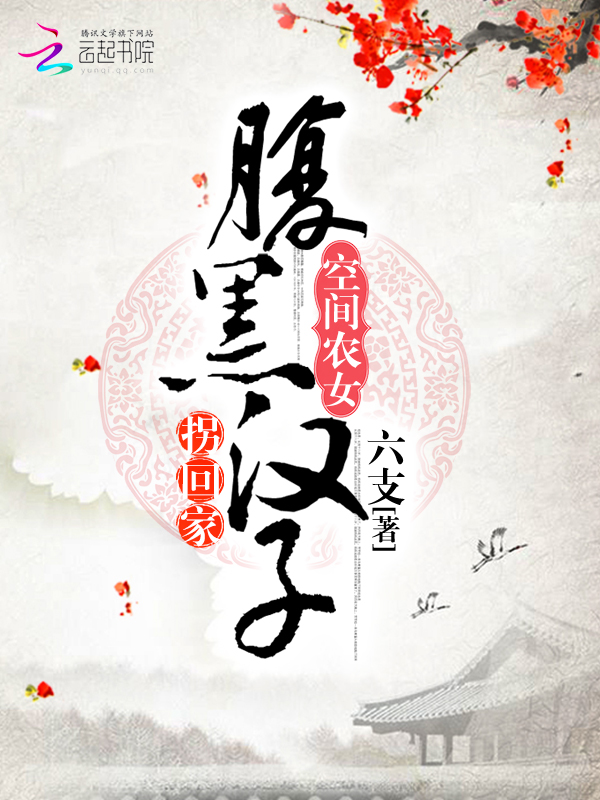 腾讯文学旗下网站
云起书院
yunqi.qq.com
空间农女
腹黑汉子
拐回家
六支[著]